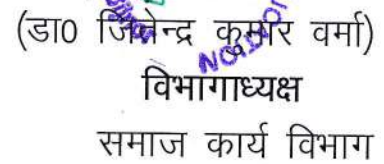 (डा0 जितेन्द्र कुमार वर्मा)
विभागाध्यक्ष
समाज कार्य विभाग